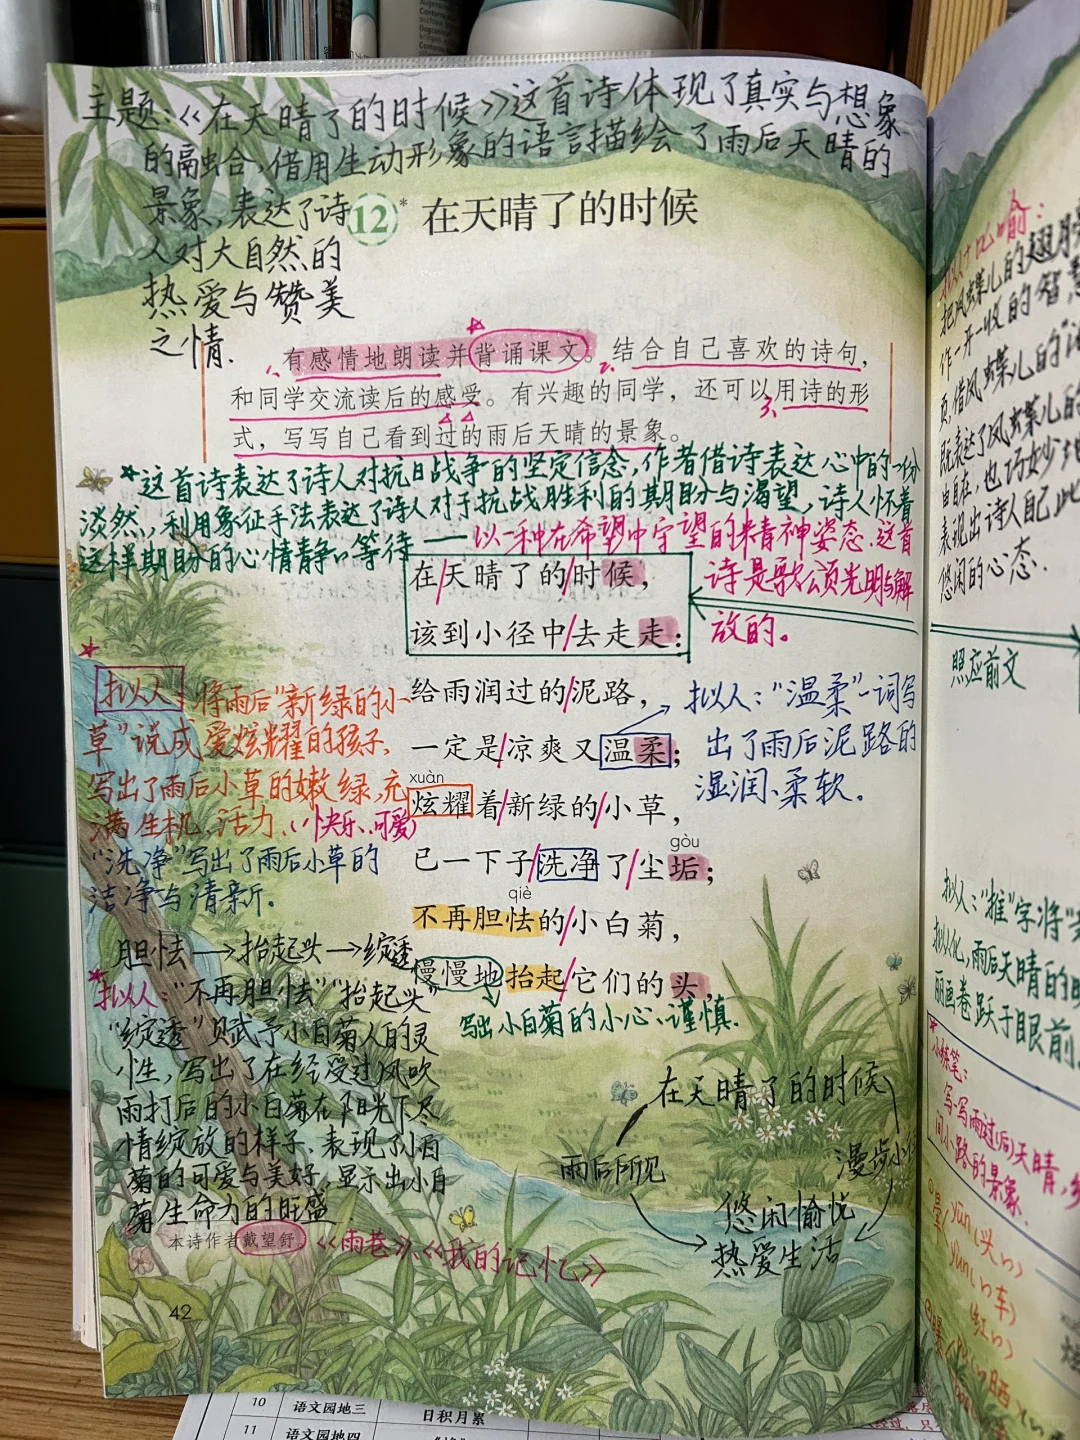 主题:《在天晴了的时候》这首诗体现了真实与想象
的融合,借用生动形象的语言描绘了雨后天晴的
景象,表达了诗
人对大自然的
热爱与赞美
之情.
12* 在天晴了的时候
有感情地朗读并背诵课文。结合自己喜欢的诗句,
和同学交流读后的感受。有兴趣的同学,还可以用诗的形
式,写写自己看到过的雨后天晴的景象。
1.
2.
3.
这首诗表达了诗人对抗日战争的坚定信念,作者借诗表达心中的一份
淡然,利用象征手法表达了诗人对于抗战胜利的期盼与渴望,诗人怀着
这样期盼的心情静心等待——以一种在希望中守望的精神姿态.这首
诗是歌颂光明与解
放的。
在/天晴了的/时候,
该到小径中/去走走;
给雨润过的/泥路,
一定是/凉爽又温柔;
xuàn
炫耀着/新绿的/小草,
gòu
已一下子/洗净了/尘垢;
qiè
不再胆怯的/小白菊,
慢慢地抬起/它们的头,
拟人:"温柔"一词写
出了雨后泥路的
湿润、柔软.
拟人:将雨后"新绿的小
草"说成爱炫耀的孩子,
写出了雨后小草的嫩绿,充
满生机,活力.(快乐、可爱)
"洗净"写出了雨后小草的
洁净与清新.
胆怯→抬起头→绽透
拟人:"不再胆怯""抬起头"
"绽透"赋予小白菊人的灵
性,写出了在经受过风吹
雨打后的小白菊在阳光下尽
情绽放的样子.表现了小白
菊的可爱与美好,显示出小白
菊生命力的旺盛
写出小白菊的小心、谨慎.
在天晴了的时候
雨后所见
漫步小
悠闲愉悦
热爱生活
本诗作者戴望舒。《雨巷》、《我的记忆》
42
把风蝶儿的翅
作一开一收的智慧
页,借风蝶儿的
既表达了风蝶儿的
由自在,也巧妙地
表现出诗人自己此
悠闲的心态.
照应前文
拟人:"推"字将
拟人化,雨后天晴的
丽画卷跃于眼前.
小练笔:
写一写雨过(后)天晴,
间小路的景象.
yūn(头~)
yùn(~车)
(红~)
10 语文园地三 日积月累
11 语文园地四